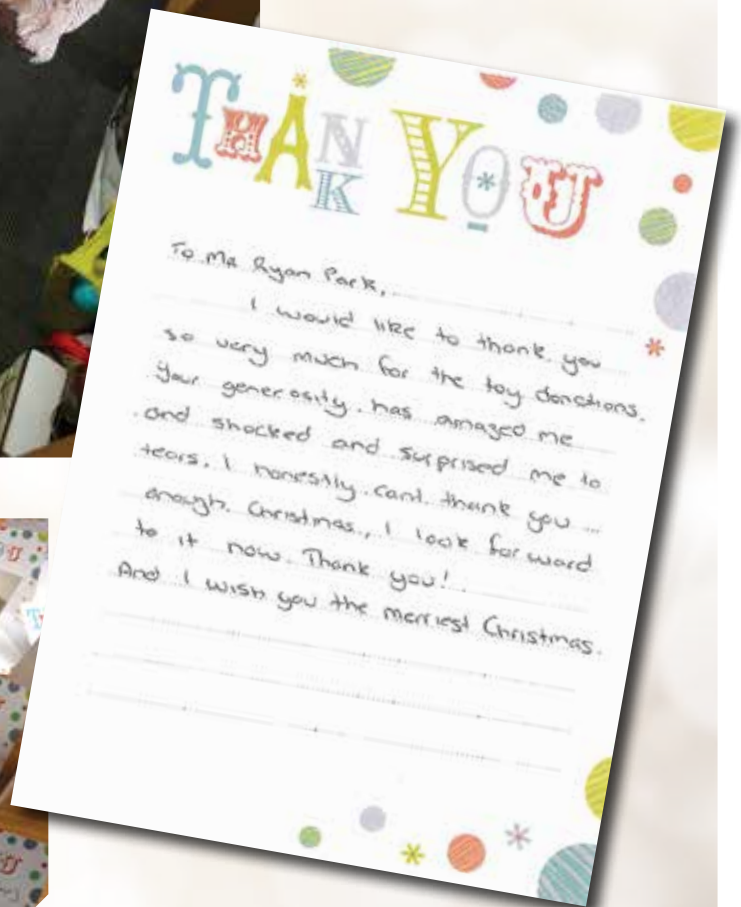 THANK YOU
To Mr Ryan Park,
I would like to thank you
so very much for the toy donations.
Your generosity has amazed me
and shocked and surprised me to
tears. I honestly cant thank you ...
enough. Christmas, I look forward
to it now. Thank you!
And I wish you the merriest Christmas.